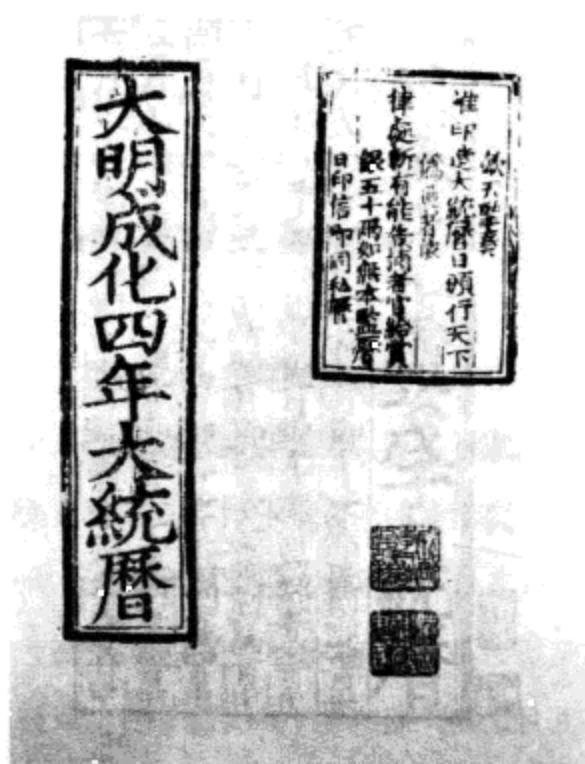 欽天監奏
准印造大統曆日頒行天下
偽造者依
律處斬有能告捕者官給賞
銀五十兩如無本監曆
日印信即同私曆
大明成化四年大統曆